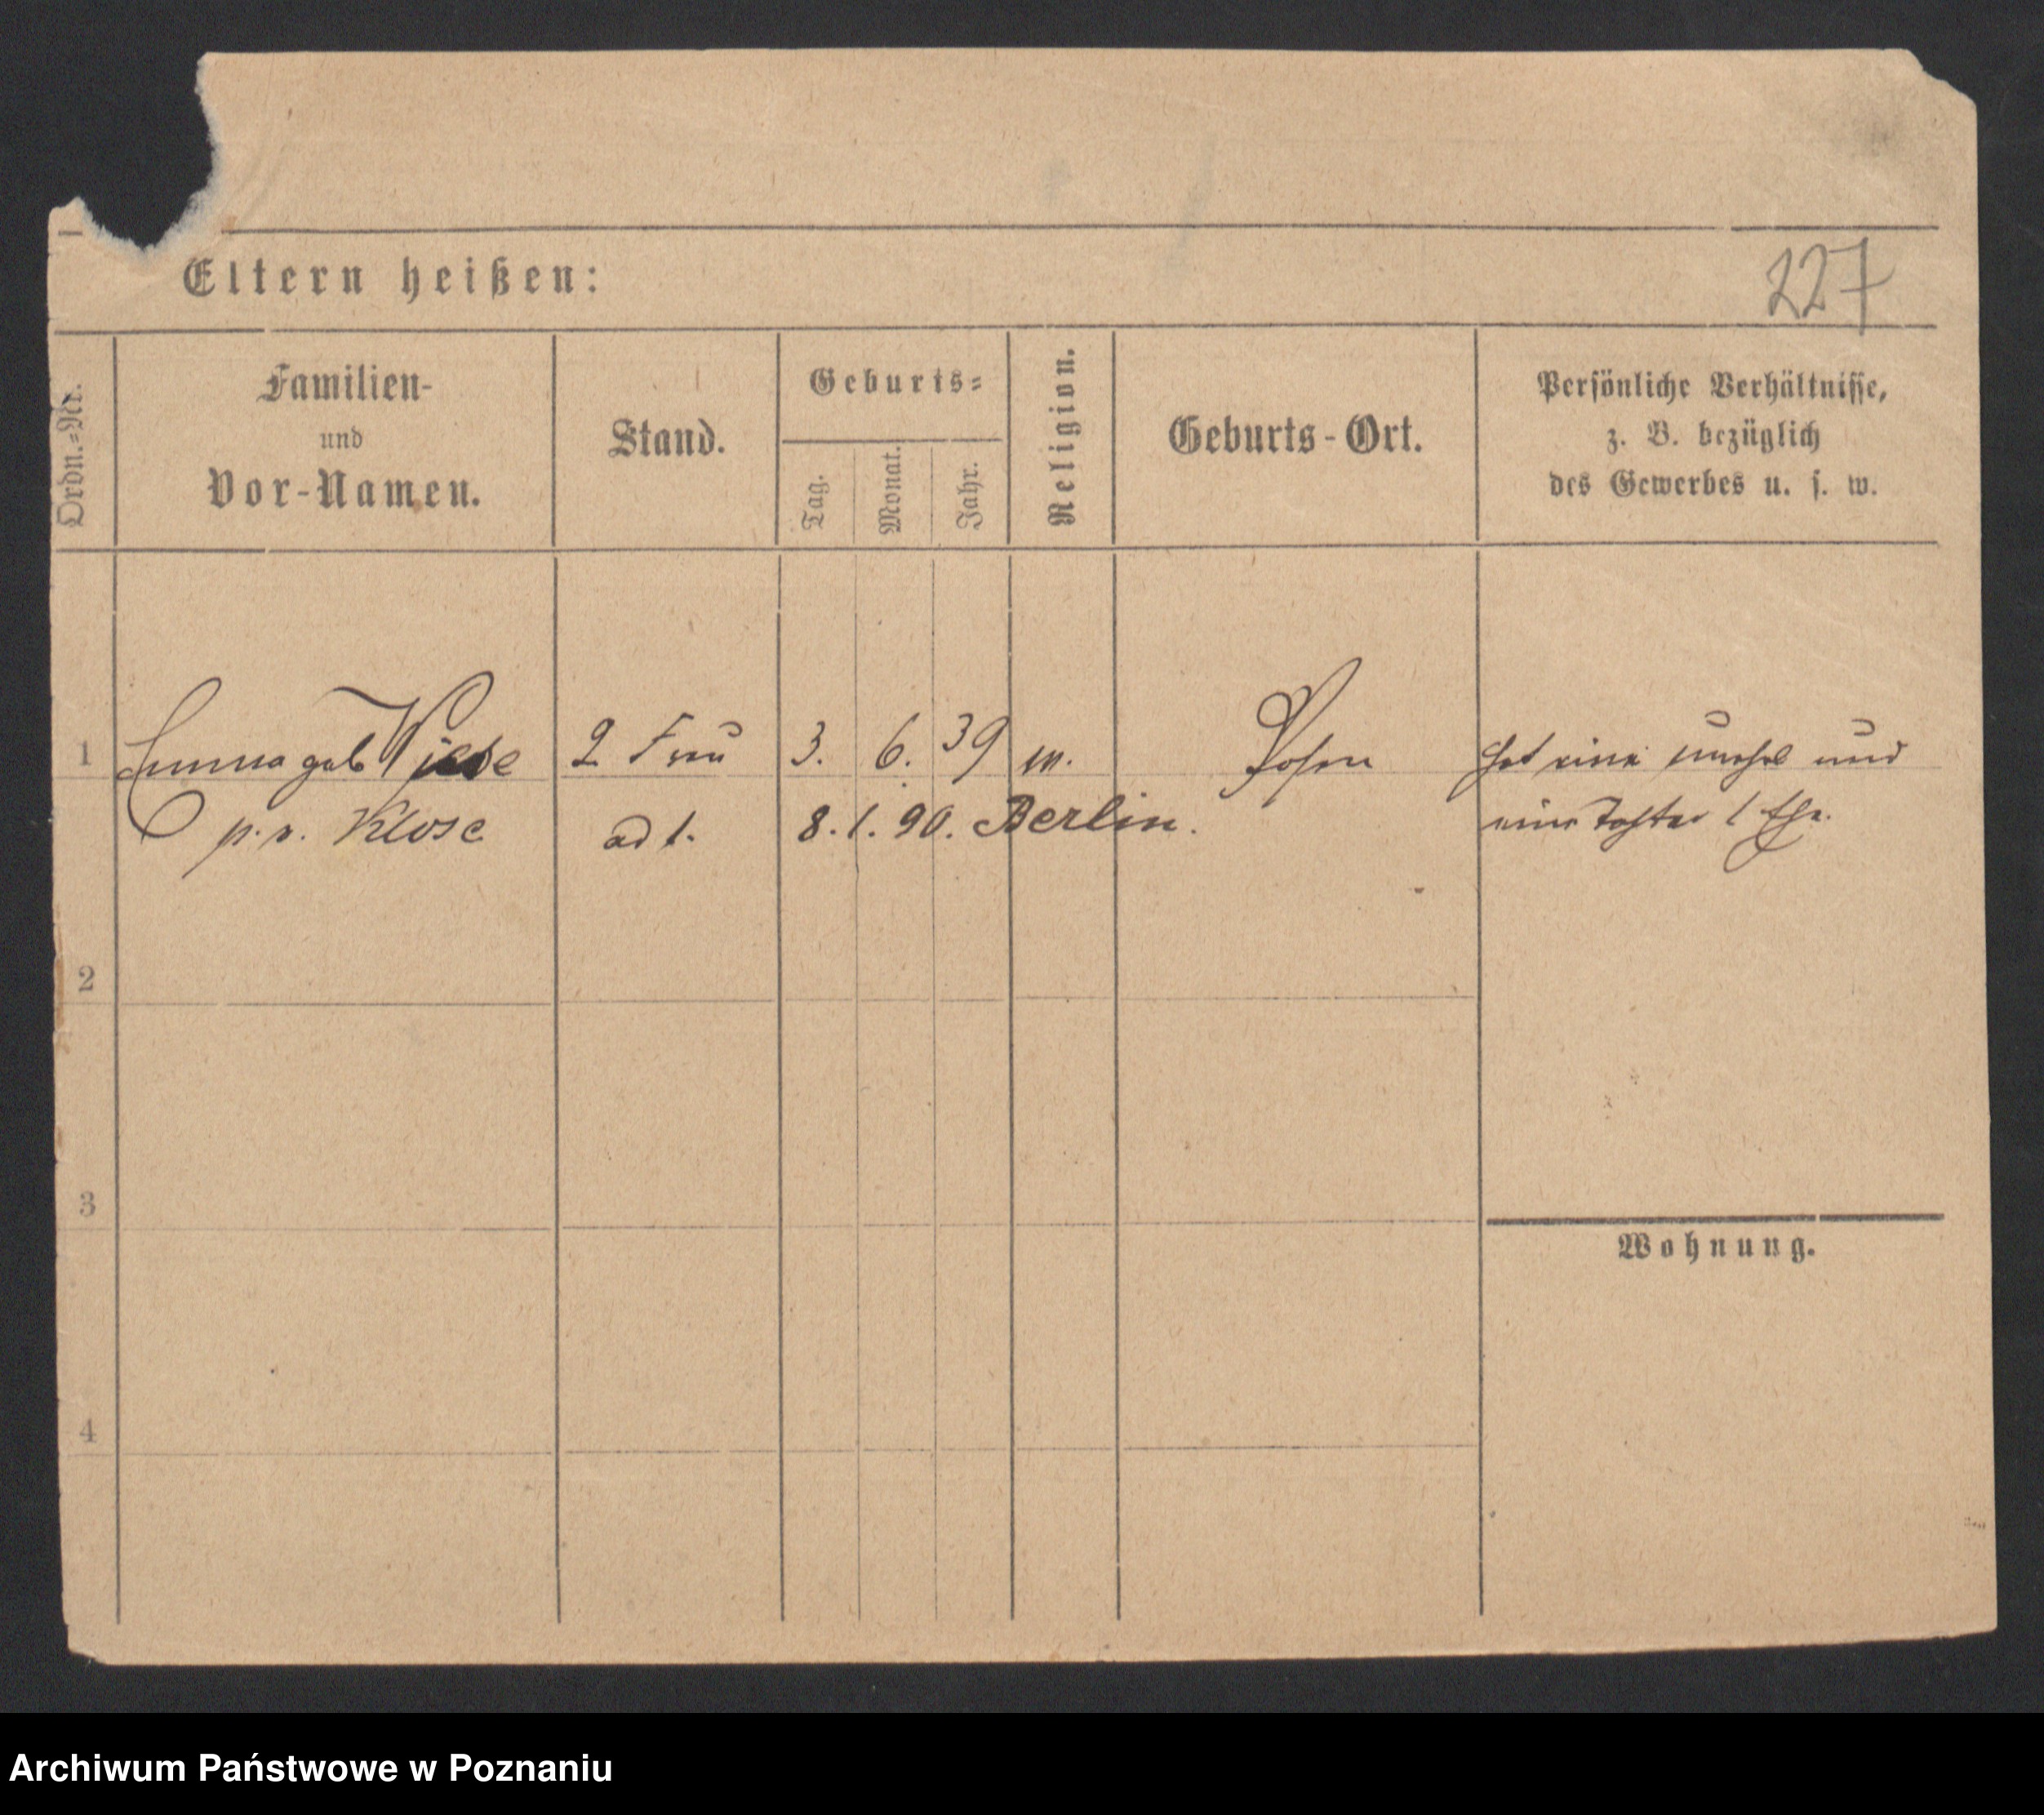 Eltern heißen:
227
Ordn.-Nr.
Familien-
und
Vor-Namen.
Stand.
Geburts-
Tag.
Monat.
Jahr.
Religion.
Geburts-Ort.
Persönliche Verhältnisse,
z. B. bezüglich
des Gewerbes u. s. w.
1 Emma geb 2 Frau 3. 6. 39 Posen hat eine unehel und
p. v. Klose ad 1. 8. 1. 90. Berlin. eine Tochter 1 Ehe.
2
3
Wohnung.
4
Archiwum Państwowe w Poznaniu